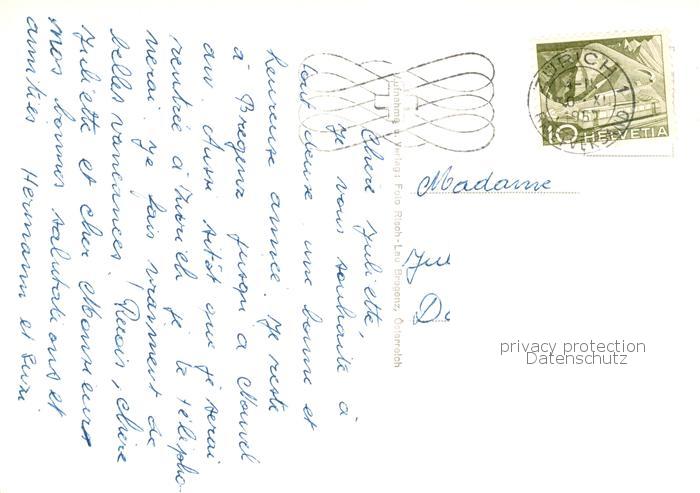 Chère Juliette,
Je vous souhaite à
tout deux une bonne et
heureuse année. Je reste
à Bregenz jusqu'à Nouvel
an. Aussi sitôt que je serai
rentrée à Zurich je te télépho-
nerai. Je fais vraiment de
belles vacances! Reçois, chère
Juliette et cher Monsieur
nos bonnes salutations et
amitiés Hermann et Susi
Aufnahme u. Verlag: Foto Risch-Lau Bregenz, Österreich
ZÜRICH 1
195
BRIEFVERSAND
10 HELVETIA
Madame
Jul
De
privacy protection
Datenschutz